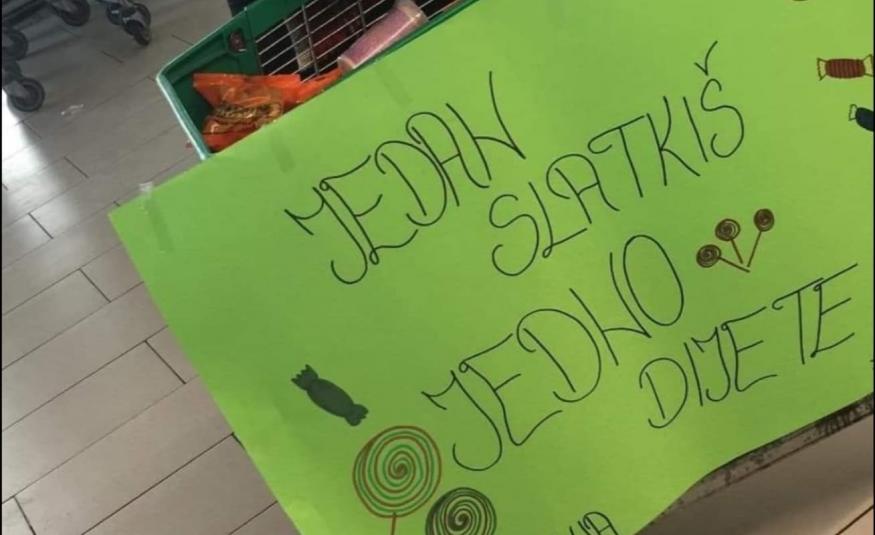 JEDAN
SLATKIŠ
JEDNO
DIJETE